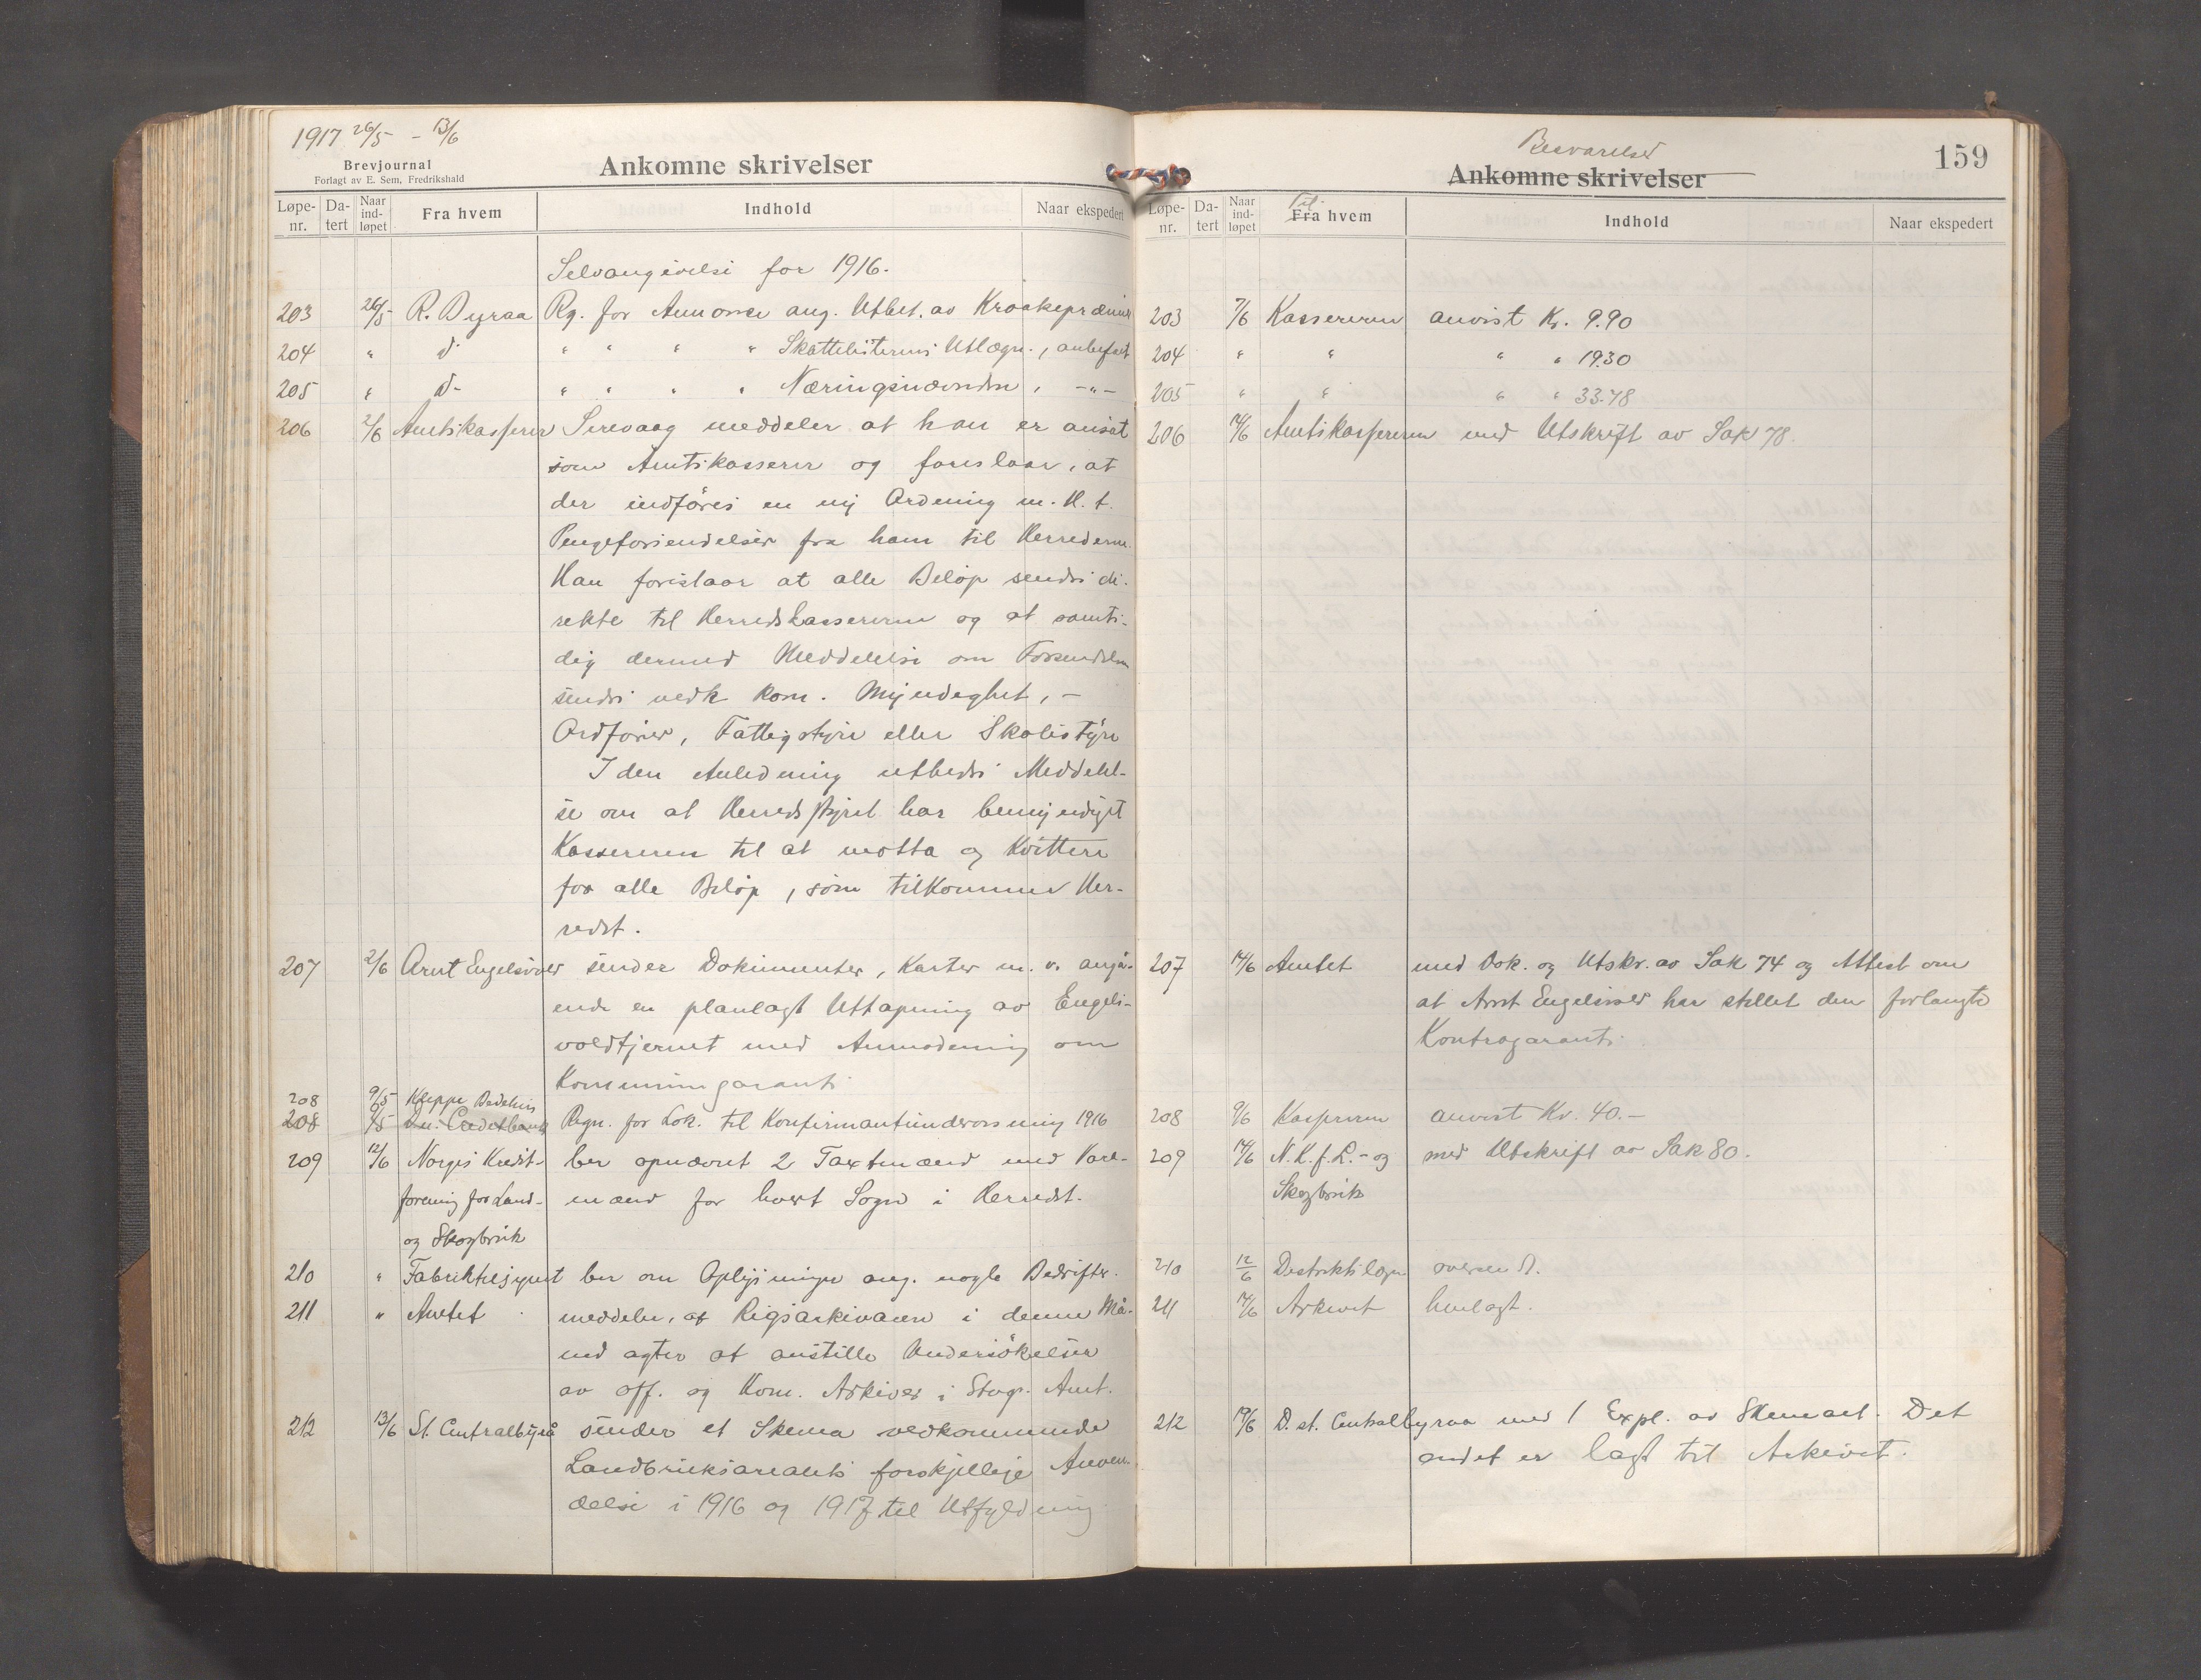 1917 26/5 - 13/6
Brevjournal
Forlagt av E. Sem, Fredrikshald
Ankomne skrivelser
Løpe-nr. Da-tert Naar ind-løpet Fra hvem Indhold Naar ekspedert
Selvangivelse for 1916.
203 26/5 R. Dyraa Rg. for Annonse ang. Utbet. av Kraakepræmier
204 " d- " " " " Skattelisternes Utlægn., anbefalt
205 " d- " " " " Næringsnævnden, -"-
206 2/6 Amtskasserer Sirevaag meddeler at han er ansat
som Amtskasserer og foreslaar, at
der indføres en ny Ordning m. H. t.
Pengeforsendelser fra ham til Herrederne.
Han foreslaar at alle Beløp sendes di-
rekte til Herredskassereren og at samti-
dig dermed Meddelelse om Forsendelsen
sendes vedk kom. Myndighet, -
Ordfører, Fattigstyre eller Skolestyre
I den Anledning utbedes Meddelel-
se om at Herredsstyret har bemyndiget
Kassereren til at motta og kvittere
for alle Beløp, som tilkommer Her-
redet.
207 2/6 Arnt Engelsvoll sender Dokumenter, Karter m. v. angå-
ende en planlagt Uttapning av Engels-
voldtjernet med Anmodning om
Kommunegaranti
208 9/5 Kleppe Bedehus
208 9/5 Dn. Creditbank Regn. for Lok. til Konfirmantundervisning 1916
209 12/6 Norges Kredit- ber opnævnt 2 Taxtmænd med Vare-
forening for Land- mænd for hvert Sogn i Herredet.
og Skogbruk
210 " Fabriktilsynet ber om Oplysninger ang. nogle Bedrifter.
211 " Amtet meddeler, at Rigsarkivaren i denne Må-
ned agter at anstille Undersøkelser
av off. og Kom. Arkiver i Stvgr. Amt.
212 13/6 St. Centralbyrå sender et Skema vedkommende
Landbruksarealets forskjellige Anven-
delse i 1916 og 1917 til Utfyldning
Besvarelser
Ankomne skrivelser
159
Løpe-nr. Da-tert Naar ind-løpet Til Fra hvem Indhold Naar ekspedert
203 7/6 Kassereren anvist Kr. 9.90
204 " " " " 19.30
205 " " " " 33.78
206 14/6 Amtskassereren med Utskrift av Sak 78.
207 14/6 Amtet med Dok. og Utskr. av Sak 74 og Attest om
at Arnt Engelsvoll har stillet den forlangte
Kontragaranti.
208 9/6 Kassereren anvist Kr. 40.-
209 14/6 N. K. f. L.- og med Utskrift av Sak 80.
Skogbruk
210 12/6 Distriktslægen oversendt.
211 14/6 Arkivet henlagt.
212 19/6 D. st. Centralbyraa med 1 Expl. av Skemaet. Det
andet er lagt til Arkivet.